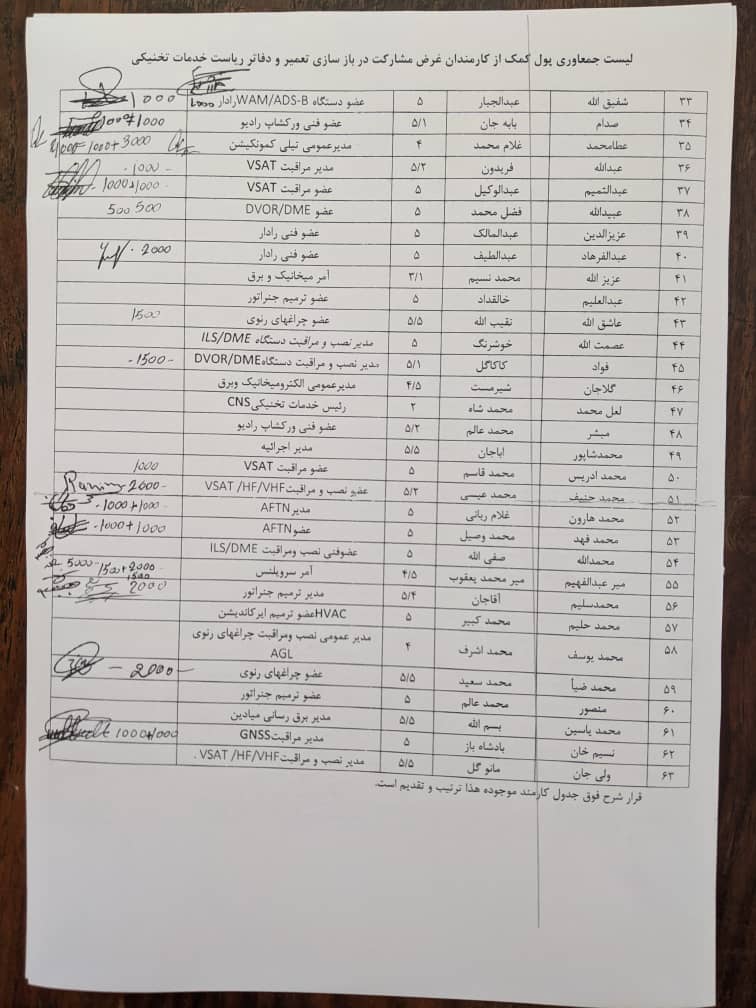 لیست جمعآوری پول کمک از کارمندان غرض مشارکت در باز سازی تعمیر و دفاتر ریاست خدمات تخنیکی
۳۳ شفیق الله عبدالجبار ۵ عضو دستگاه WAM/ADS-B رادار 1000
۳۴ صدام بابه جان ۵/۱ عضو فنی ورکشاپ رادیو 1000+1000
۳۵ عطامحمد غلام محمد ۴ مدیرعمومی تیلی کمونکیشن 1000+3000
۳۶ عبدالله فریدون ۵/۲ مدیر مراقبت VSAT 1000-
۳۷ عبدالتمیم عبدالوکیل ۵ عضو مراقبت VSAT 1000+1000-
۳۸ عبیدالله فضل محمد ۵ عضو DVOR/DME 500 500
۳۹ عزیزالدین عبدالمالک ۵ عضو فنی رادار
۴۰ عبدالفرهاد عبدالطیف ۵ عضو فنی رادار 2000
۴۱ عزیز الله محمد نسیم ۳/۱ آمر میخانیک و برق
۴۲ عبدالعلیم خالقداد ۵ عضو ترمیم جنراتور
۴۳ عاشق الله نقیب الله ۵/۵ عضو چراغهای رنوی 1500
۴۴ عصمت الله خوشرنگ ۵ مدیر نصب و مراقبت دستگاه ILS/DME
۴۵ فواد کاکاگل ۵/۱ مدیر نصب و مراقبت دستگاه DVOR/DME -1500-
۴۶ گلاجان شیرمست ۴/۵ مدیرعمومی الکترومیخانیک وبرق
۴۷ لعل محمد محمد شاه ۲ رئیس خدمات تخنیکی CNS
۴۸ مبشر محمد عالم ۵/۲ عضو فنی ورکشاپ رادیو
۴۹ محمدشاپور اباجان ۵/۵ مدیر اجرائیه
۵۰ محمد ادریس محمد قاسم ۵ عضو مراقبت VSAT 1000
۵۱ محمد حنیف محمد عیسی ۵/۲ عضو نصب و مراقبت VSAT /HF/VHF 2000-
۵۲ محمد هارون غلام ربانی ۵ مدیر AFTN -1000+1000
۵۳ محمد فهد محمد وصیل ۵ عضو AFTN -1000+1000
۵۴ محمدالله صفی الله ۵ عضوفنی نصب ومراقبت ILS/DME
۵۵ میر عبدالفهیم میر محمد یعقوب ۴/۵ آمر سرویلنس 5000- 1500+2000
۵۶ محمدسلیم آقاجان ۵/۴ مدیر ترمیم جنراتور 1500 2000
۵۷ محمد حلیم محمد کبیر ۵ HVAC عضو ترمیم ایرکاندیشن
۵۸ محمد یوسف محمد اشرف ۴ مدیر عمومی نصب ومراقبت چراغهای رنوی
AGL
۵۹ محمد ضیأ محمد سعید ۵/۵ عضو چراغهای رنوی - 2000-
۶۰ منصور محمد عالم ۵ عضو ترمیم جنراتور
۶۱ محمد یاسین بسم الله ۵/۵ مدیر برق رسانی میادین
۶۲ نسیم خان بادشاه باز ۵ مدیر مراقبت GNSS 1000+1000
۶۳ ولی جان مانو گل ۵/۵ مدیر نصب و مراقبت VSAT /HF/VHF .
قرار شرح فوق جدول کارمند موجوده هذا ترتیب و تقدیم است.